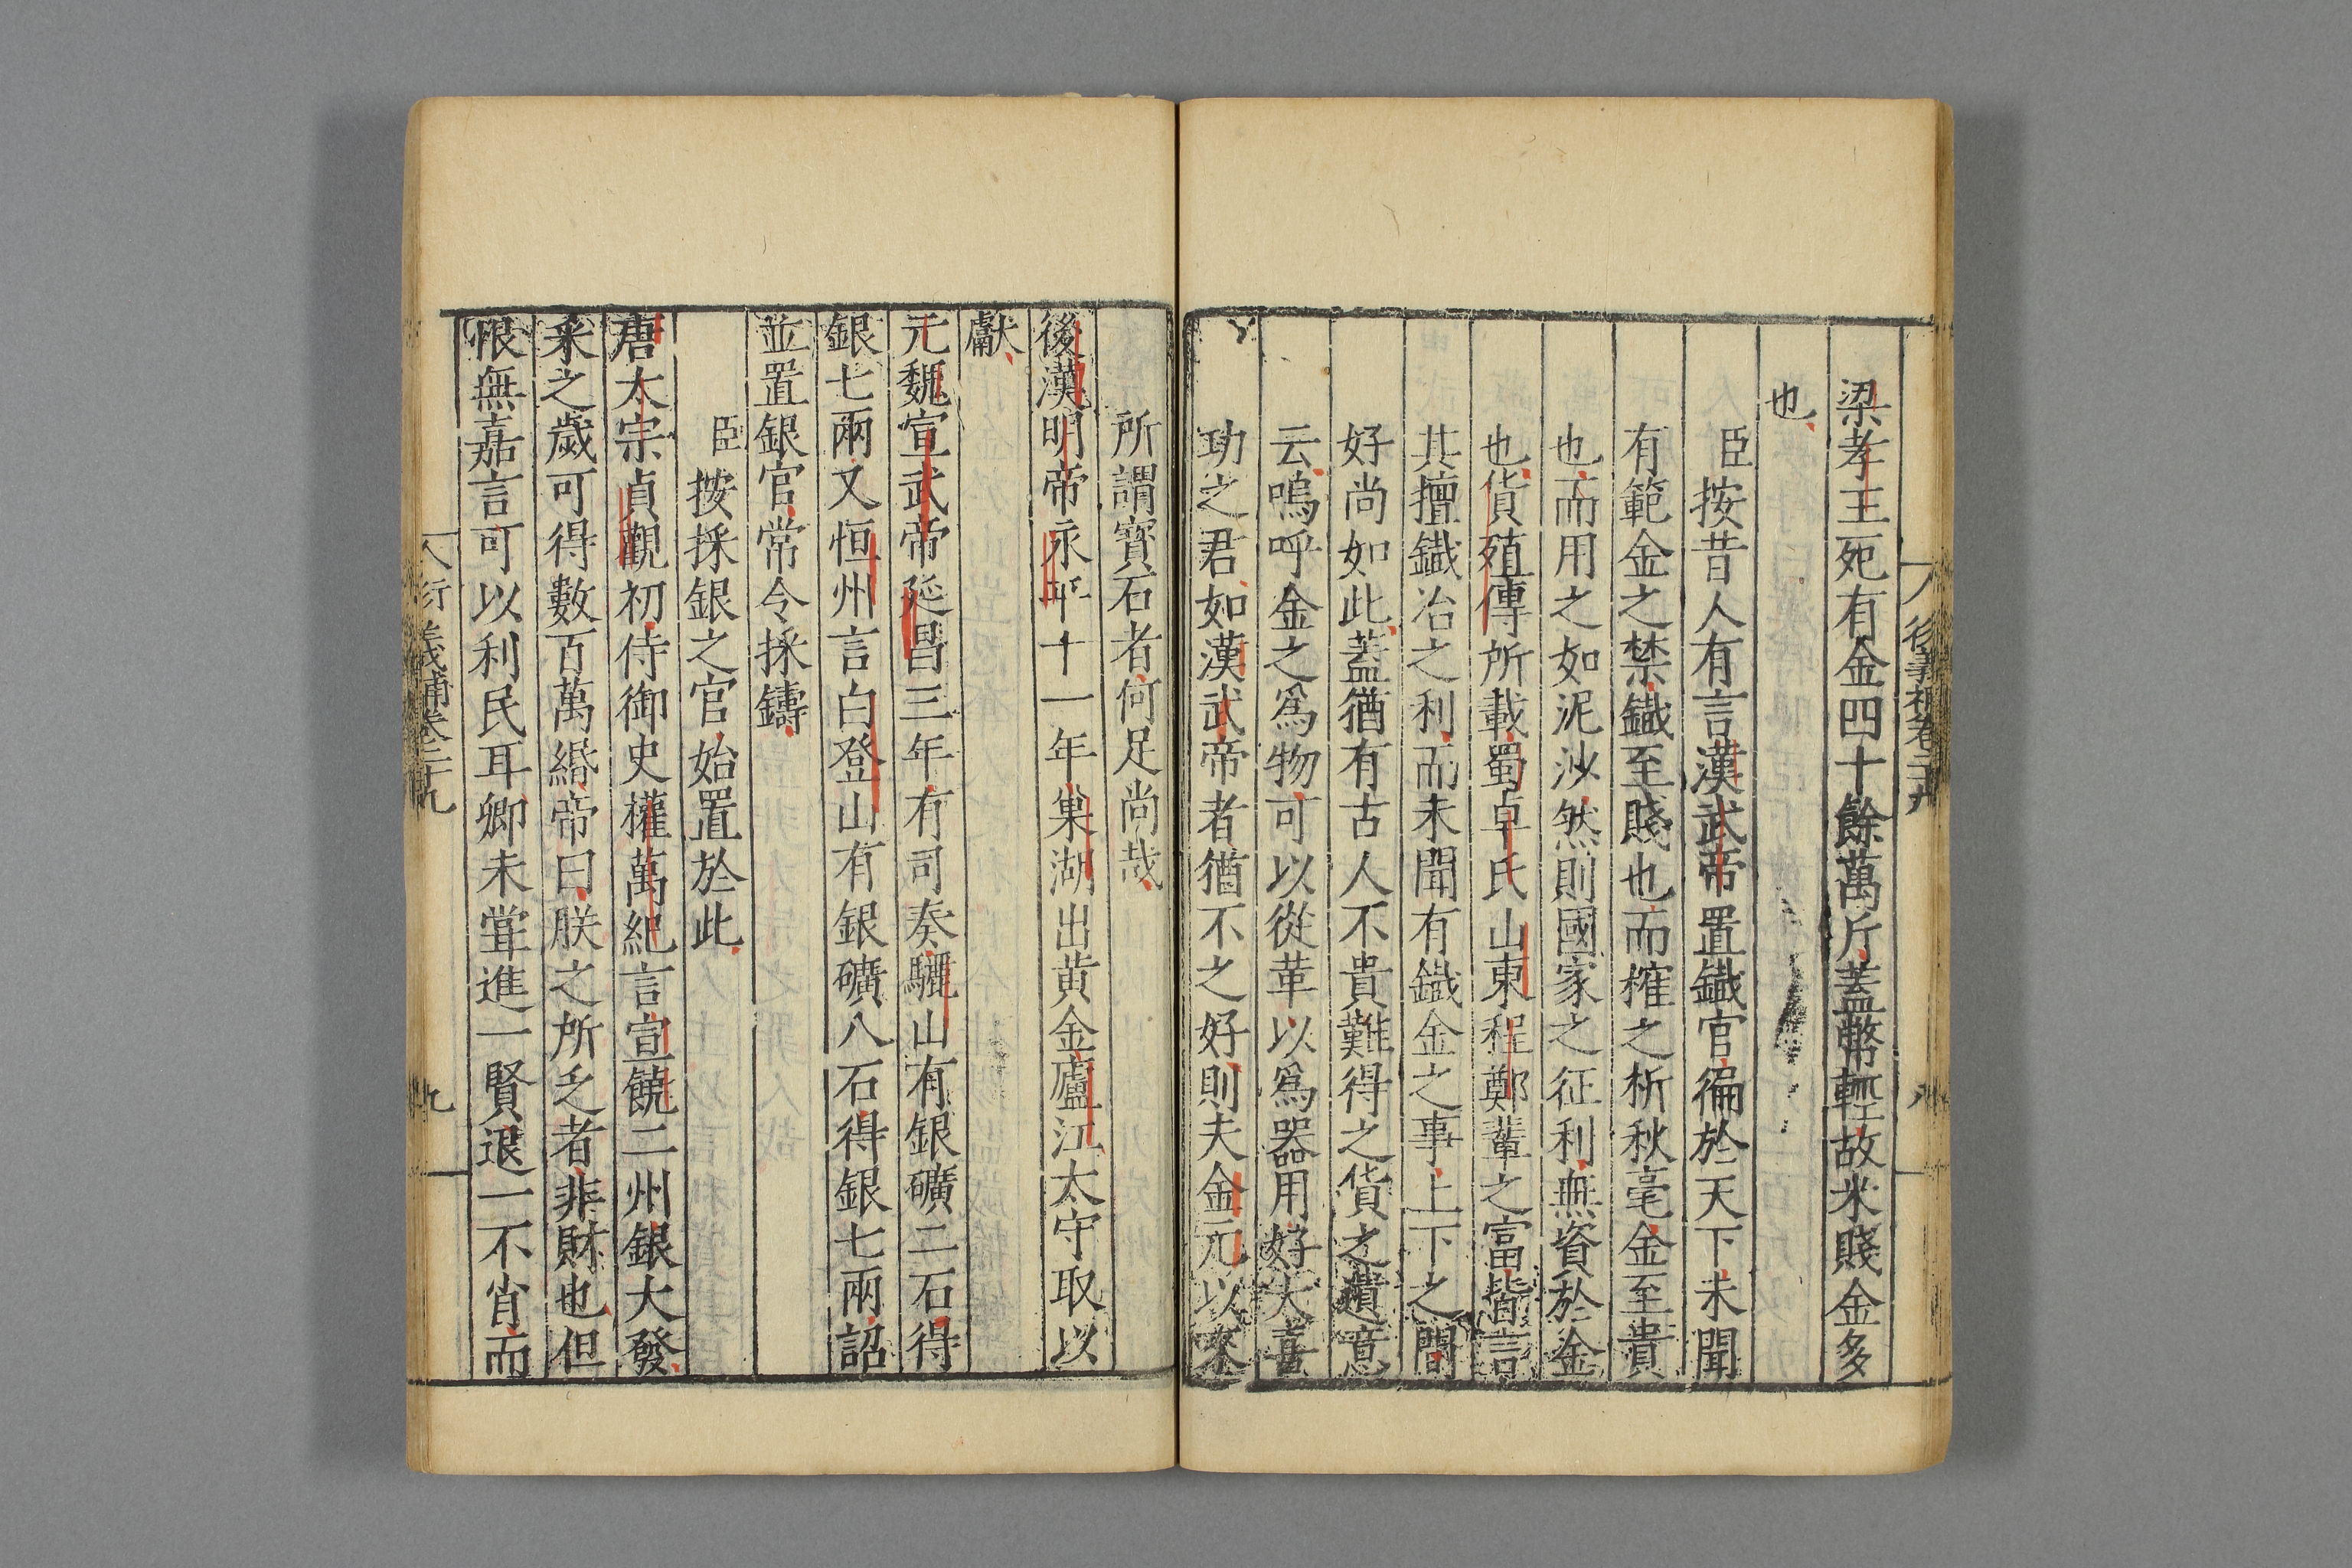 梁孝王死有金四十餘萬斤蓋幣輕故米賤金多
也
臣按昔人有言漢武帝置鐵官徧於天下未聞
有範金之禁鐵至賤也而榷之析秋毫金至貴
也而用之如泥沙然則國家之征利無資於金
也貨殖傳所載蜀卓氏山東程鄭輩之富皆言
其擅鐵冶之利而未聞有鐵金之事上下之間
好尚如此蓋猶有古人不貴難得之貨之遺意
云嗚呼金之爲物可以從革以爲器用好大喜
功之君如漢武帝者猶不之好則夫金元以來
所謂寶石者何足尚哉
後漢明帝永平十一年巢湖出黃金廬江太守取以
獻
元魏宣武帝延昌三年有司奏驪山有銀礦二石得
銀七兩又恒州言白登山有銀礦八石得銀七兩詔
並置銀官常令採鑄
臣按採銀之官始置於此
唐太宗貞觀初侍御史權萬紀言宣饒二州銀大發
采之歲可得數百萬緡帝曰朕之所乏者非財也但
恨無嘉言可以利民耳卿未嘗進一賢退一不肖而
衍義補卷二十九
九